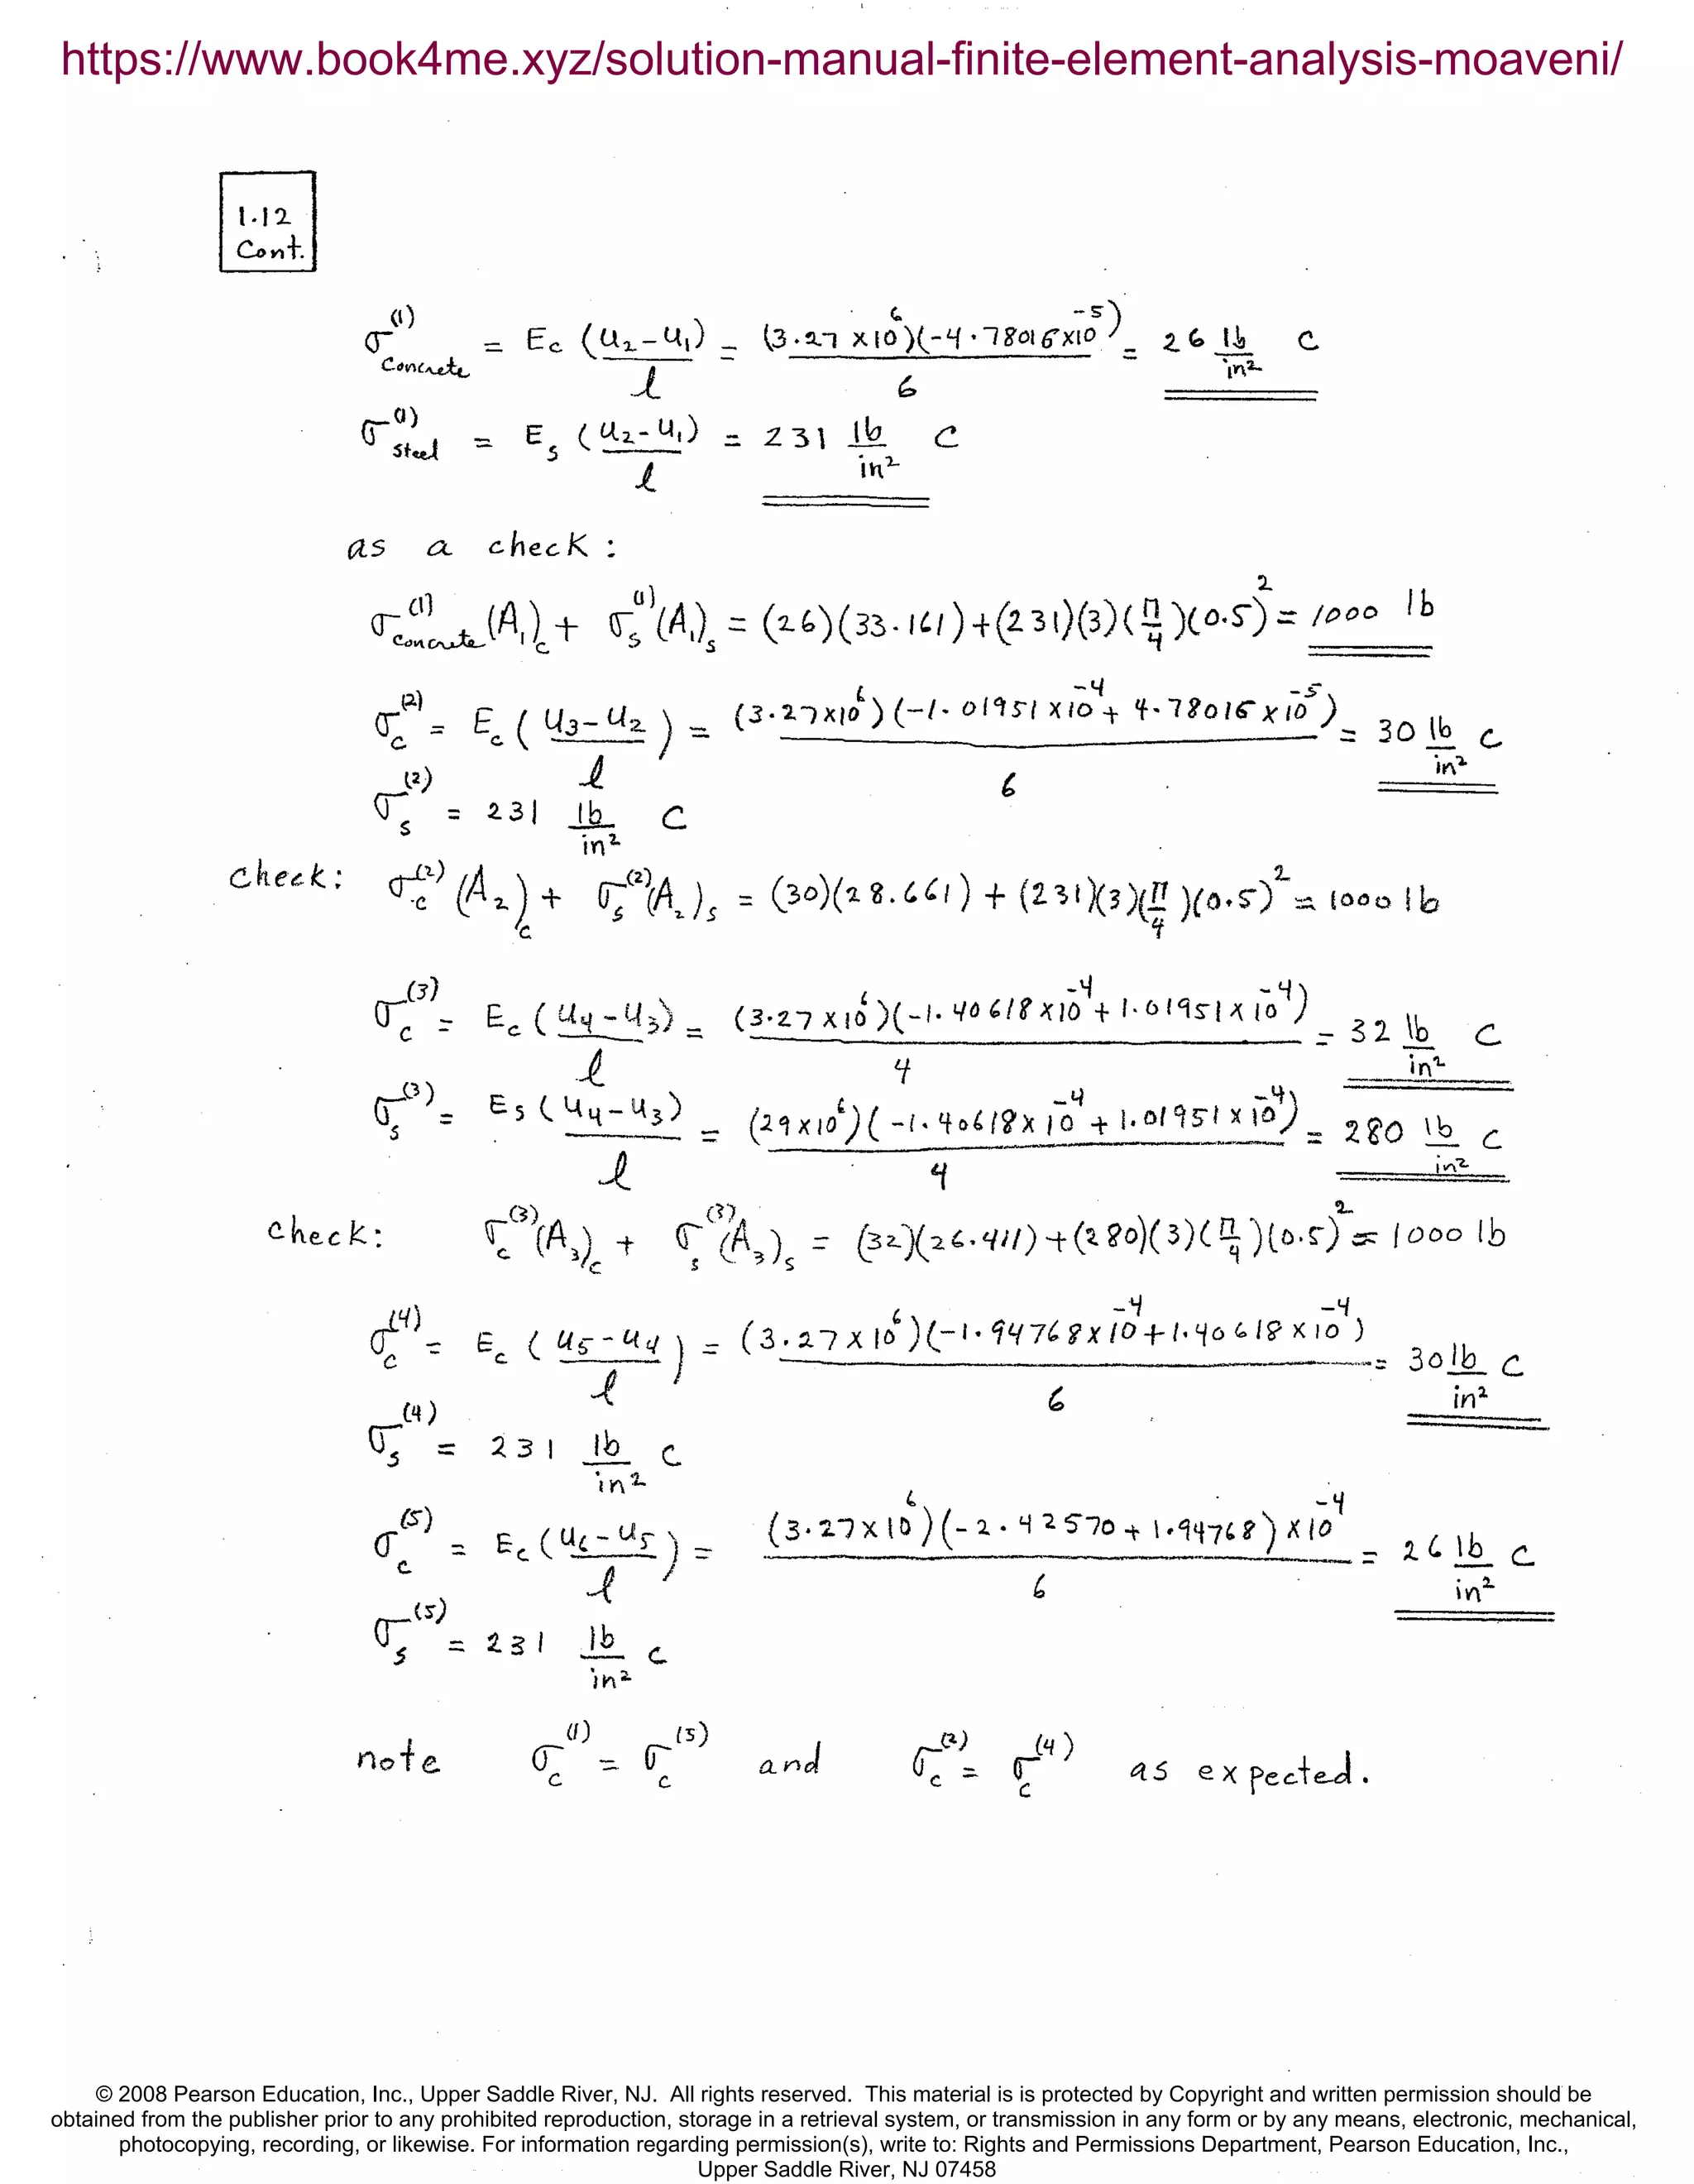 https://www.book4me.xyz/solution-manual-finite-element-analysis-moaveni/
1.12
Cont.
σ_concrete^(1) = E_c (u_2-u_1)/l = (3.27 x10^6)(-4.78016x10^-5)/6 = 26 lb/in^2 C
σ_steel^(1) = E_s (u_2-u_1)/l = 231 lb/in^2 C
as a check :
σ_concrete^(1) (A_1)_c + σ_s^(1) (A_1)_s = (26)(33.161)+(231)(3)(π/4)(0.5)^2 = 1000 lb
σ_c^(2) = E_c (u_3-u_2 / l) = (3.27x10^6)(-1.01951 x10^-4 + 4.78016 x10^-5)/6 = 30 lb/in^2 C
σ_s^(2) = 231 lb/in^2 C
check: σ_c^(2) (A_2)_c + σ_s^(2) (A_2)_s = (30)(28.661) + (231)(3)(π/4)(0.5)^2 ≈ 1000 lb
σ_c^(3) = E_c (u_4-u_3)/l = (3.27 x10^6)(-1.40618 x10^-4 + 1.01951 x10^-4)/4 = 32 lb/in^2 C
σ_s^(3) = E_s (u_4-u_3)/l = (29x10^6)(-1.40618x10^-4 + 1.01951 x10^-4)/4 = 280 lb/in^2 C
check: σ_c^(3) (A_3)_c + σ_s^(3) (A_3)_s = (32)(26.411)+(280)(3)(π/4)(0.5)^2 ≈ 1000 lb
σ_c^(4) = E_c (u_5-u_4 / l) = (3.27 x10^6)(-1.94768x10^-4 + 1.40618 x10^-4)/6 = 30 lb/in^2 C
σ_s^(4) = 231 lb/in^2 C
σ_c^(5) = E_c (u_6-u_5 / l) = (3.27x10^6)(-2.42570 + 1.94768) x10^-4/6 = 26 lb/in^2 C
σ_s^(5) = 231 lb/in^2 C
note σ_c^(1) = σ_c^(5) and σ_c^(2) = σ_c^(4) as expected.
© 2008 Pearson Education, Inc., Upper Saddle River, NJ. All rights reserved. This material is is protected by Copyright and written permission should be
obtained from the publisher prior to any prohibited reproduction, storage in a retrieval system, or transmission in any form or by any means, electronic, mechanical,
photocopying, recording, or likewise. For information regarding permission(s), write to: Rights and Permissions Department, Pearson Education, Inc.,
Upper Saddle River, NJ 07458